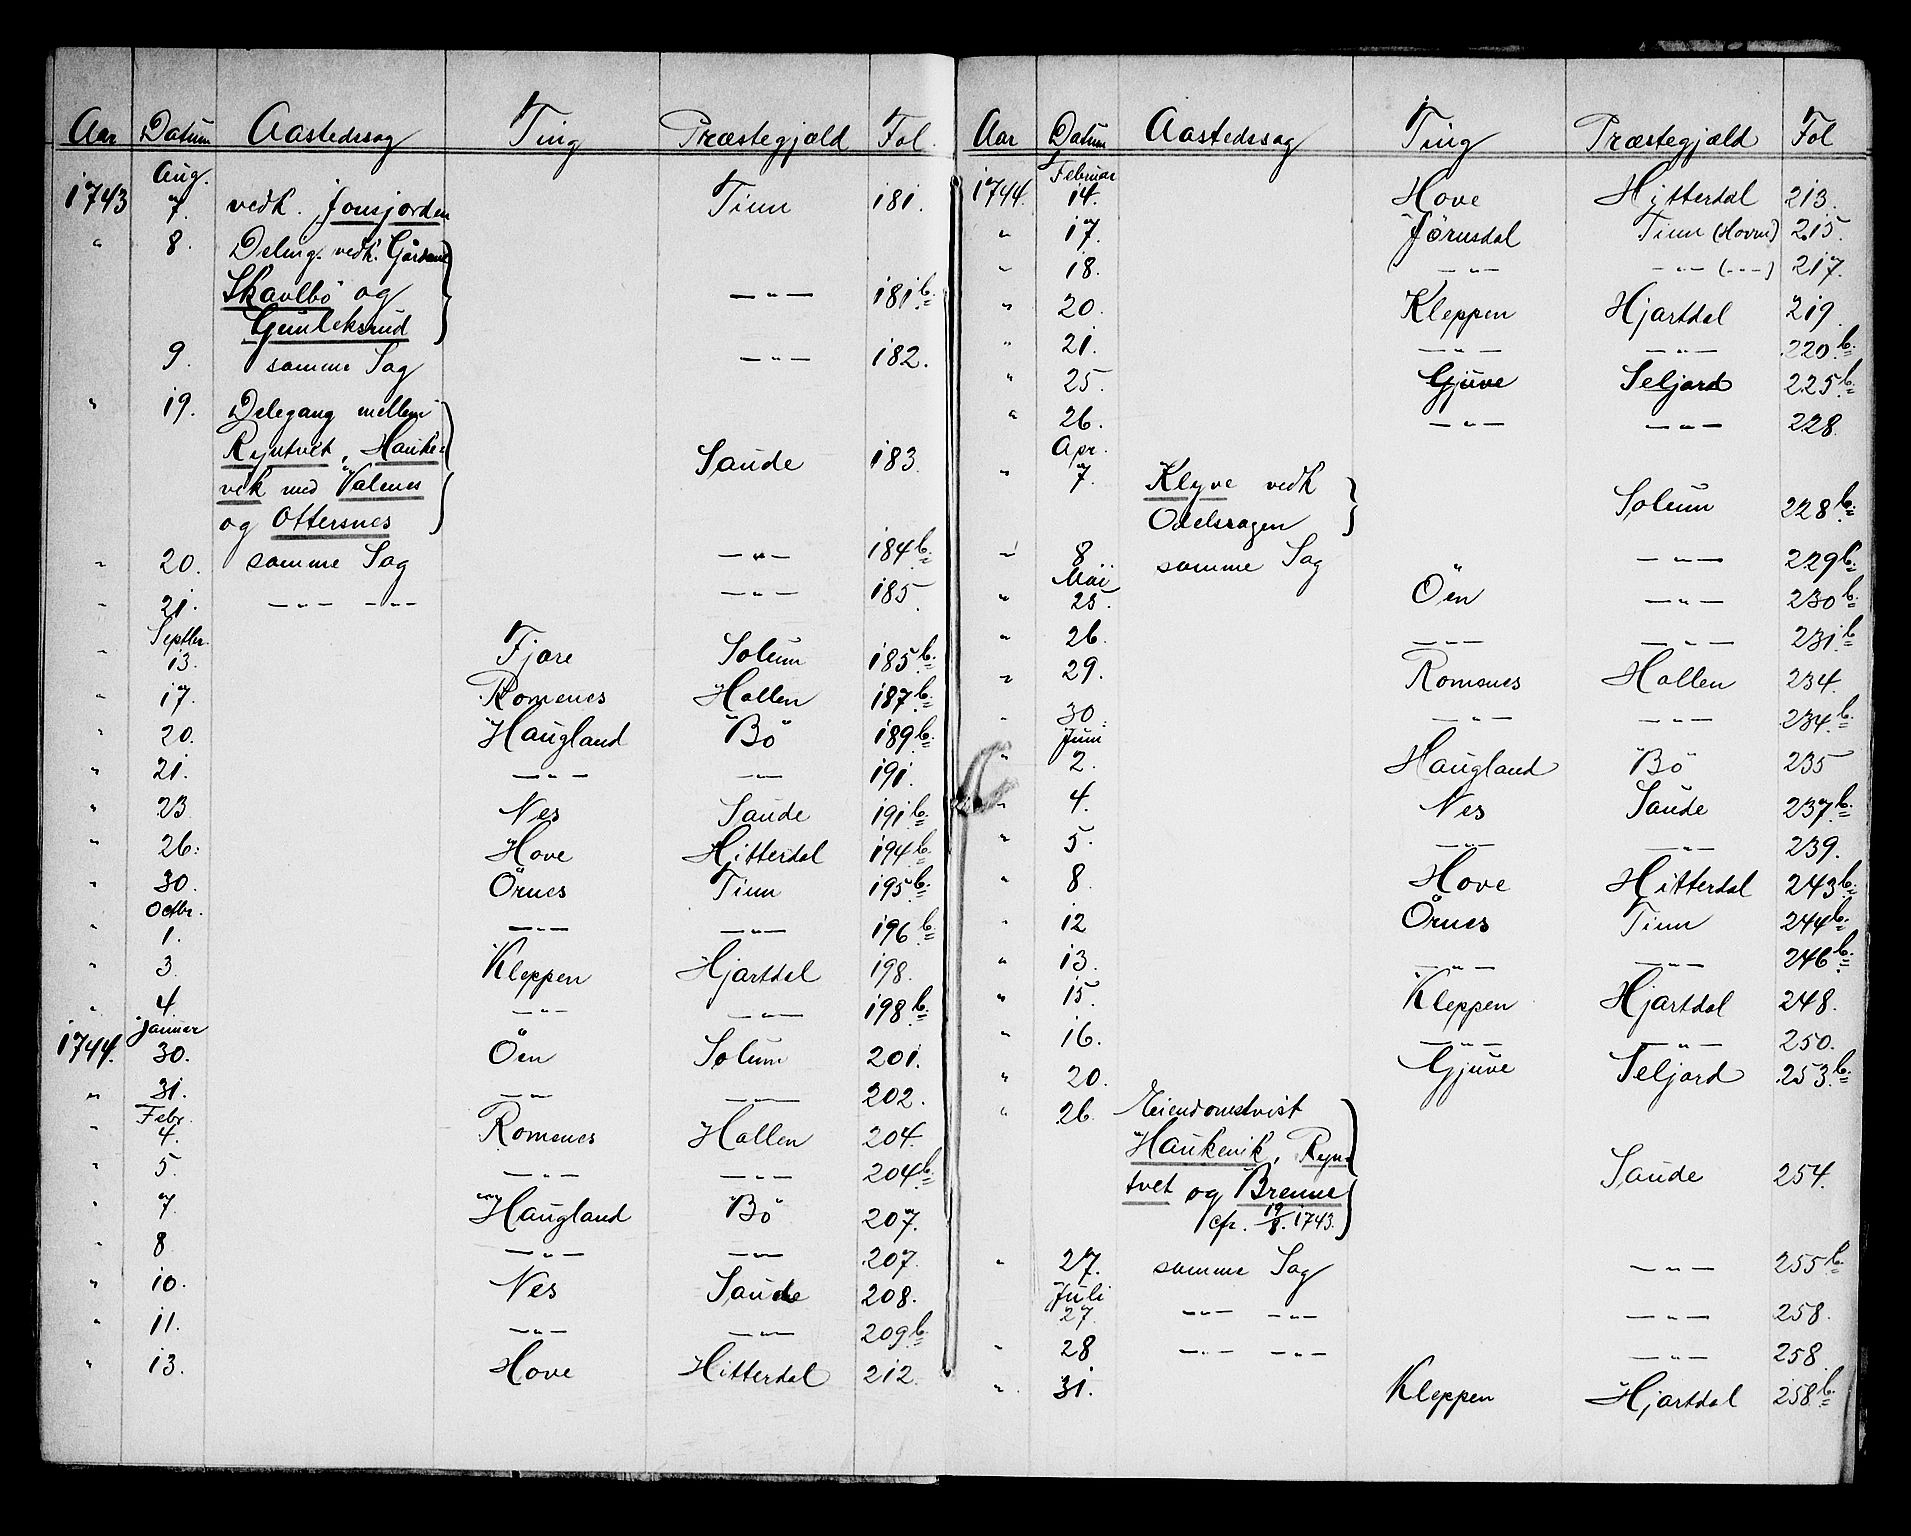 Aar Datum Aastedssag Ting Præstegjæld Fol.
Aug.
1743 7. vedk. Jonsjorden Tinn 181.
" 8. Deling. vedk. Gårdene
Skavlbö og —"— 181 b.
Gunleksrud
9. samme Sag —"— 182.
" 19. Delegang mellem
Ryntvet, Hauke= Saude 183.
vik med Valenes
og Ottersnes
" 20. samme Sag —"— 184 b.
" 21. —"— —"— —"— 185.
Septbr.
" 13. Fjære Solum 185 b.
" 17. Romenes Hollen 187 b.
" 20. Haugland Bö 189 b.
" 21. —"— —"— 191.
" 23 Nes Saude 191 b.
" 26. Hove Hitterdal 194 b.
" 30. Örnes Tinn 195 b.
Octbr.
" 1. —"— —"— 196 b.
" 3. Kleppen Hjartdal 198.
" 4. —"— —"— 198 b.
Januar
1744. 30. Öen Solum 201.
" 31. —"— —"— 202.
Febr.
" 4. Romenes Hollen 204.
" 5. —"— —"— 204 b.
" 7. Haugland Bö 207.
" 8 —"— —"— 207.
" 10. Nes Saude 208.
" 11. —"— —"— 209 b.
" 13. Hove Hitterdal 212.
Aar Datum Aastedssag Ting Præstegjæld Fol
Februar
1744. 14. Hove Hitterdal 213.
" 17. Jörnsdal Tinn (Hovin) 215.
" 18. —"— —"— (—"—) 217.
" 20. Kleppen Hjartdal 219.
" 21. —"— —"— 220 b.
" 25. Gjuve Seljord 225 b.
" 26. —"— —"— 228.
Apr.
" 7. Klyve vedk
Odelssagen Solum 228 b.
" 8. samme Sag —"— 229 b.
Mai
" 25. Öen —"— 230 b.
" 26. —"— —"— 231 b.
" 29. Romenes Hollen 234.
" 30. —"— —"— 234 b.
Juni
" 2. Haugland Bö 235
" 4. Nes Saude 237 b.
" 5. —"— —"— 239.
" 8. Hove Hitterdal 243 b.
" 12 Örnes Tinn 244 b.
" 13. —"— —"— 246 b.
" 15. Kleppen Hjartdal 248.
" 16. —"— —"— 250.
" 20. Gjuve Seljord 253 b.
" 26. Eiendomstvist
Haukevik, Ryn=
tvet og Brenne Saude 254.
cfr. 19/8. 1743.
" 27. samme Sag —"— 255 b.
Juli
27. —"— —"— —"— 258.
" 28 —"— —"— —"— 258.
" 31. Kleppen Hjartdal 258 b.